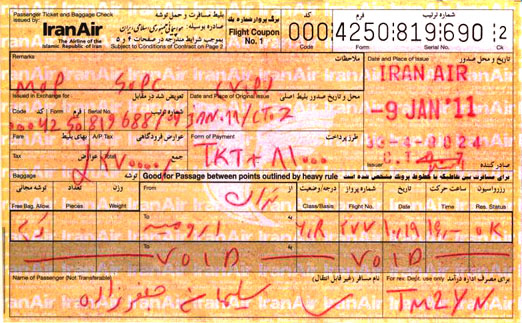 Passenger Ticket and Baggage Check
issued by:
IranAir
The Airline of the
Islamic Republic of Iran
بلیط مسافرت و حمل توشه
صادره بوسیله: هواپیمائی جمهوری اسلامی ایران
بموجب شرایط مندرجه در صفحات ۴ و ۵
Subject to Conditions of Contract on Page 2
برگ پرواز شماره یک
Flight Coupon
No. 1
کد شماره ترتیب
000 4250 819 690 2
Code Form Serial Number Ck
Remarks ملاحظات Date and Place of Issue تاریخ و محل صدور
IRAN AIR
-9 JAN '11
Issued in Exchange for تعویض شد در مقابل Date and Place of Original Issue محل و تاریخ صدور بلیط اصلی
Code Form Serial No. شماره ترتیب
Fare بهای بلیط A/P Tax عوارض فرودگاهی Form of Payment طرز پرداخت
TKT + 81000
Tax عوارض جمع
Issuer صادر کننده
Baggage توشه Good for Passage between points outlined by heavy rule برای مسافرت بین نقاطیکه با خطوط پررنگ مشخص شده است
توشه مجانی تعداد وزن From از درجه/وضعیت شماره پرواز تاریخ ساعت حرکت رزرواسیون
Free Bag. Allow. Pieces Weight Class/Basis Flight No. Date Time Res. Status
تهران
To به ارومیه Y/R ۲۷۷ ۱۰/۱۹ OK
To به VOID VOID
Name of Passenger (Not Transferable) نام مسافر (غیر قابل انتقال) For rev. Dept. use only برای مصرف اداره درآمد